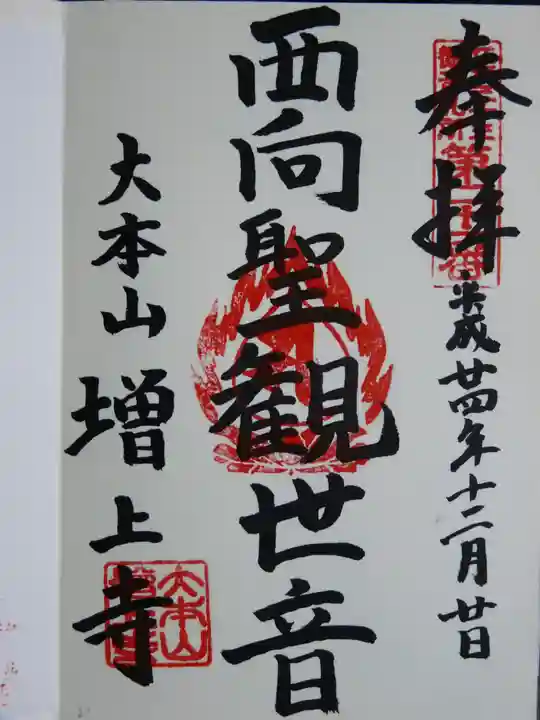 奉拝
平成廿四年十二月廿日
西向聖観世音
大本山増上寺
大本山